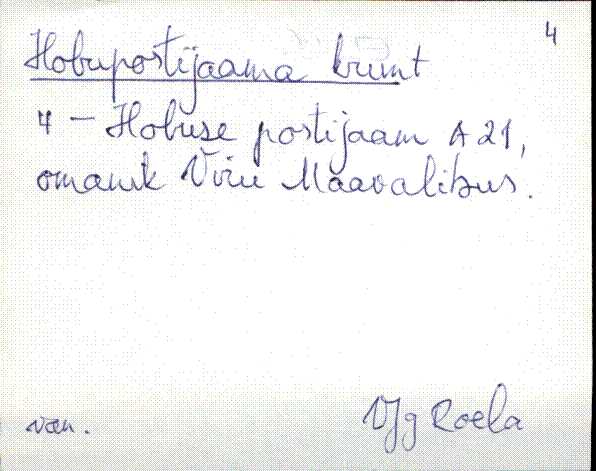 4
Hobupostijaama krunt
4 - Hobuse postijaam A 21,
omanik Viru Maavalitsus.
van.
VJg Roela